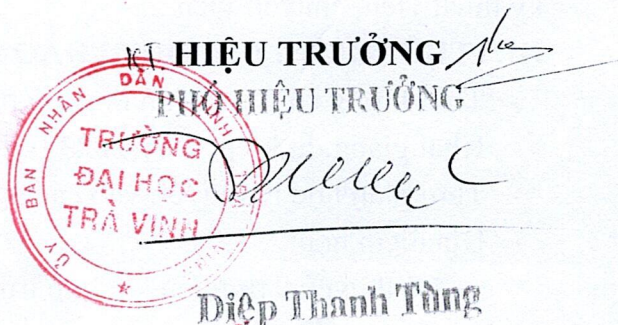 KT. HIỆU TRƯỞNG
PHÓ HIỆU TRƯỞNG
ỦY BAN NHÂN DÂN TỈNH
TRƯỜNG
ĐẠI HỌC
TRÀ VINH
Diệp Thanh Tùng